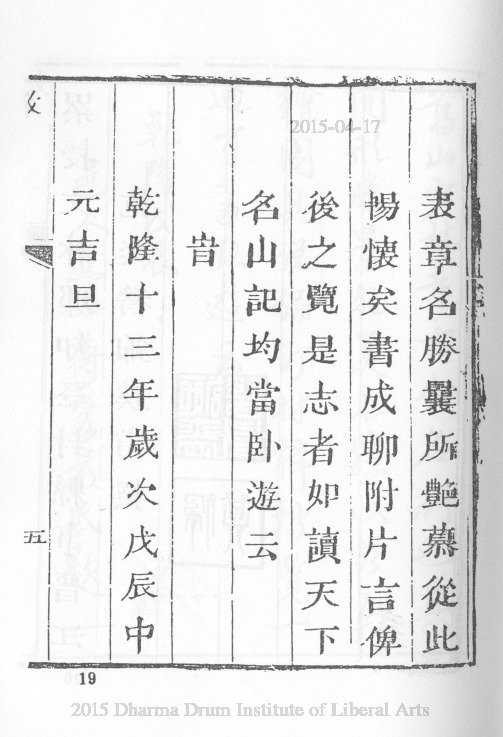 表章名勝曩所艷慕從此
暢懷矣書成聊附片言俾
後之覽是志者如讀天下
名山記均當臥遊云
旹
乾隆十三年歲次戊辰中
元吉旦
五
19
2015-04-17
2015 Dharma Drum Institute of Liberal Arts